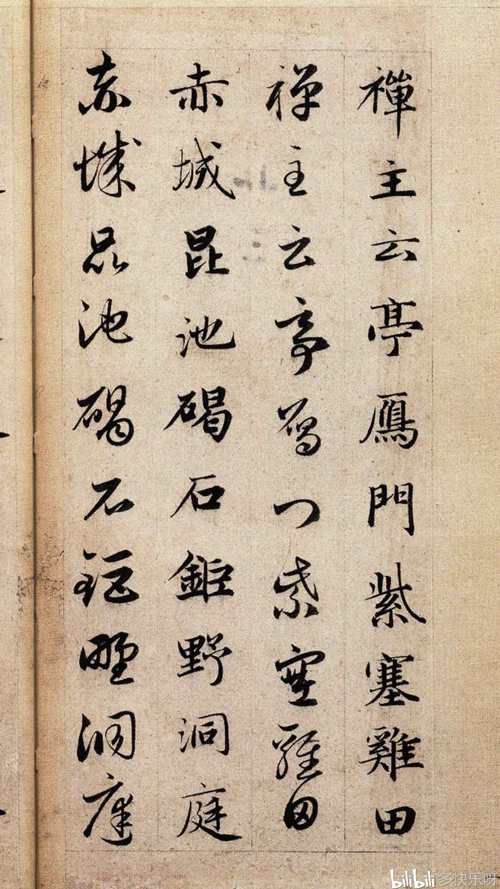 禪主云亭鴈門紫塞雞田
禪主云亭鴈門紫塞雞田
赤城昆池碣石鉅野洞庭
赤城昆池碣石鉅野洞庭
bilibili @多快乐呀